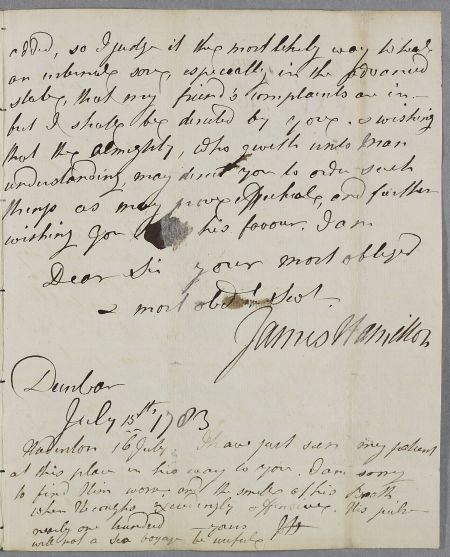 added, so I judge it the most likely way to heal
an internal sore, especially in the Advanced
state, that my friend's complaints are in —
but I shall be directed by you. & wishing
that the Almighty, who giveth unto man
understanding, may direct you to order such
things as may prove effectual, and further
wishing you his favour. I am
Dear Sir your most obliged
& most obedt. Servt.
James Hamilton
Dunbar
July 15th 1783
Hadinton 16 July. I have just seen my patient
at this place in his way to you. I am sorry
to find him worse, and the smell of his Breath
when he coughs exceedingly offensive. His pulse
nearly one hundred — yours JH
will not a sea voyage be usefull